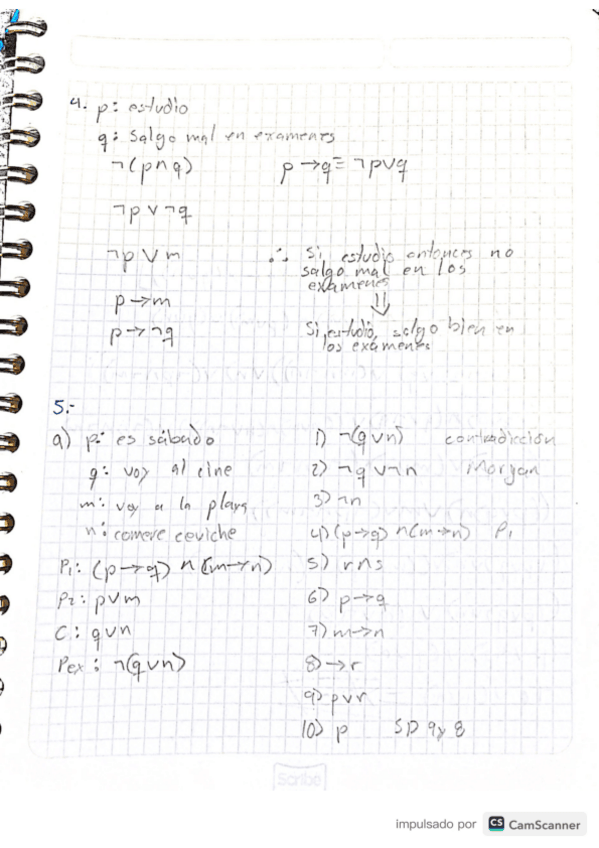 4. p: estudio
q: Salgo mal en examenes
¬(p∧q)
p→q≡¬p∨q
¬p∨¬q
¬p∨m
p→m
p→¬q
∴ Si, estudio entonces no
salgo mal en los
examenes
⇓
Si, estudio, salgo bien en
los exámenes
5.-
a) p: es sábado
q: voy al cine
m: voy a la playa
n: comere ceviche
P₁: (p→q) ∧ (m→n)
P₂: p∨m
C: q∨n
Pex: ¬(q∨n)
1) ¬(q∨n) contradicción
2) ¬q∨¬n Morgan
3) ¬n
4) (p→q) ∧ (m→n) P₁
5) r∧s
6) p→q
7) m→n
8) →r
9) p∨r
10) p SD 9y 8
Scribe
impulsado por CS CamScanner